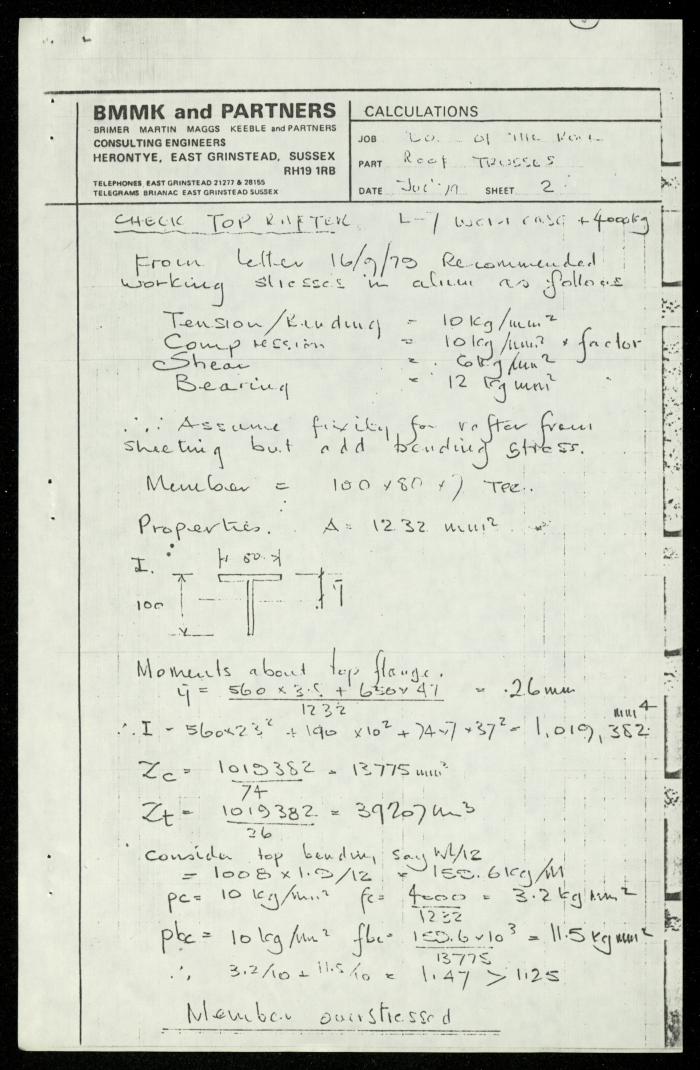 BMMK and PARTNERS
BRIMER MARTIN MAGGS KEEBLE and PARTNERS
CONSULTING ENGINEERS
HERONTYE, EAST GRINSTEAD, SUSSEX
RH19 1RB
TELEPHONES, EAST GRINSTEAD 21277 & 28155
TELEGRAMS BRIANAC EAST GRINSTEAD SUSSEX
CALCULATIONS
JOB of the
PART Roof Trusses
DATE SHEET 2
CHECK TOP RAFTER L-7 Worst case + 4000kg
From letter 16/9/79 Recommended
working stresses in alium as follows
Tension/Bending = 10 kg/mm²
Compression = 10 kg/mm² × factor
Shear = 6 kg/mm²
Bearing = 12 kg mm²
∴ Assume fixity for rafter from
sheeting but add bending stress.
Member = 100 × 80 × 7 Tee.
Properties. A = 1232 mm²
I.
80
100
ȳ
Moments about top flange.
ȳ = 560 × 3.5 + 650 × 47 = 26 mm
1232
∴ I = 560×23² + 190 ×10² + 74×7 ×37² = 1,019,382 mm4
Zc = 1019382 = 13775 mm³
74
Zt = 1019382 = 39207 m³
26
consider top bending say Wl/12
= 1008 × 1.9/12 = 159.6 kg/M
pc = 10 kg/mm² fc = 4000 = 3.2 kg mm²
1232
pbc = 10 kg/mm² fbc = 159.6×10³ = 11.5 kg mm²
13775
∴ 3.2/10 + 11.5/10 = 1.47 > 1.25
Member overstressed